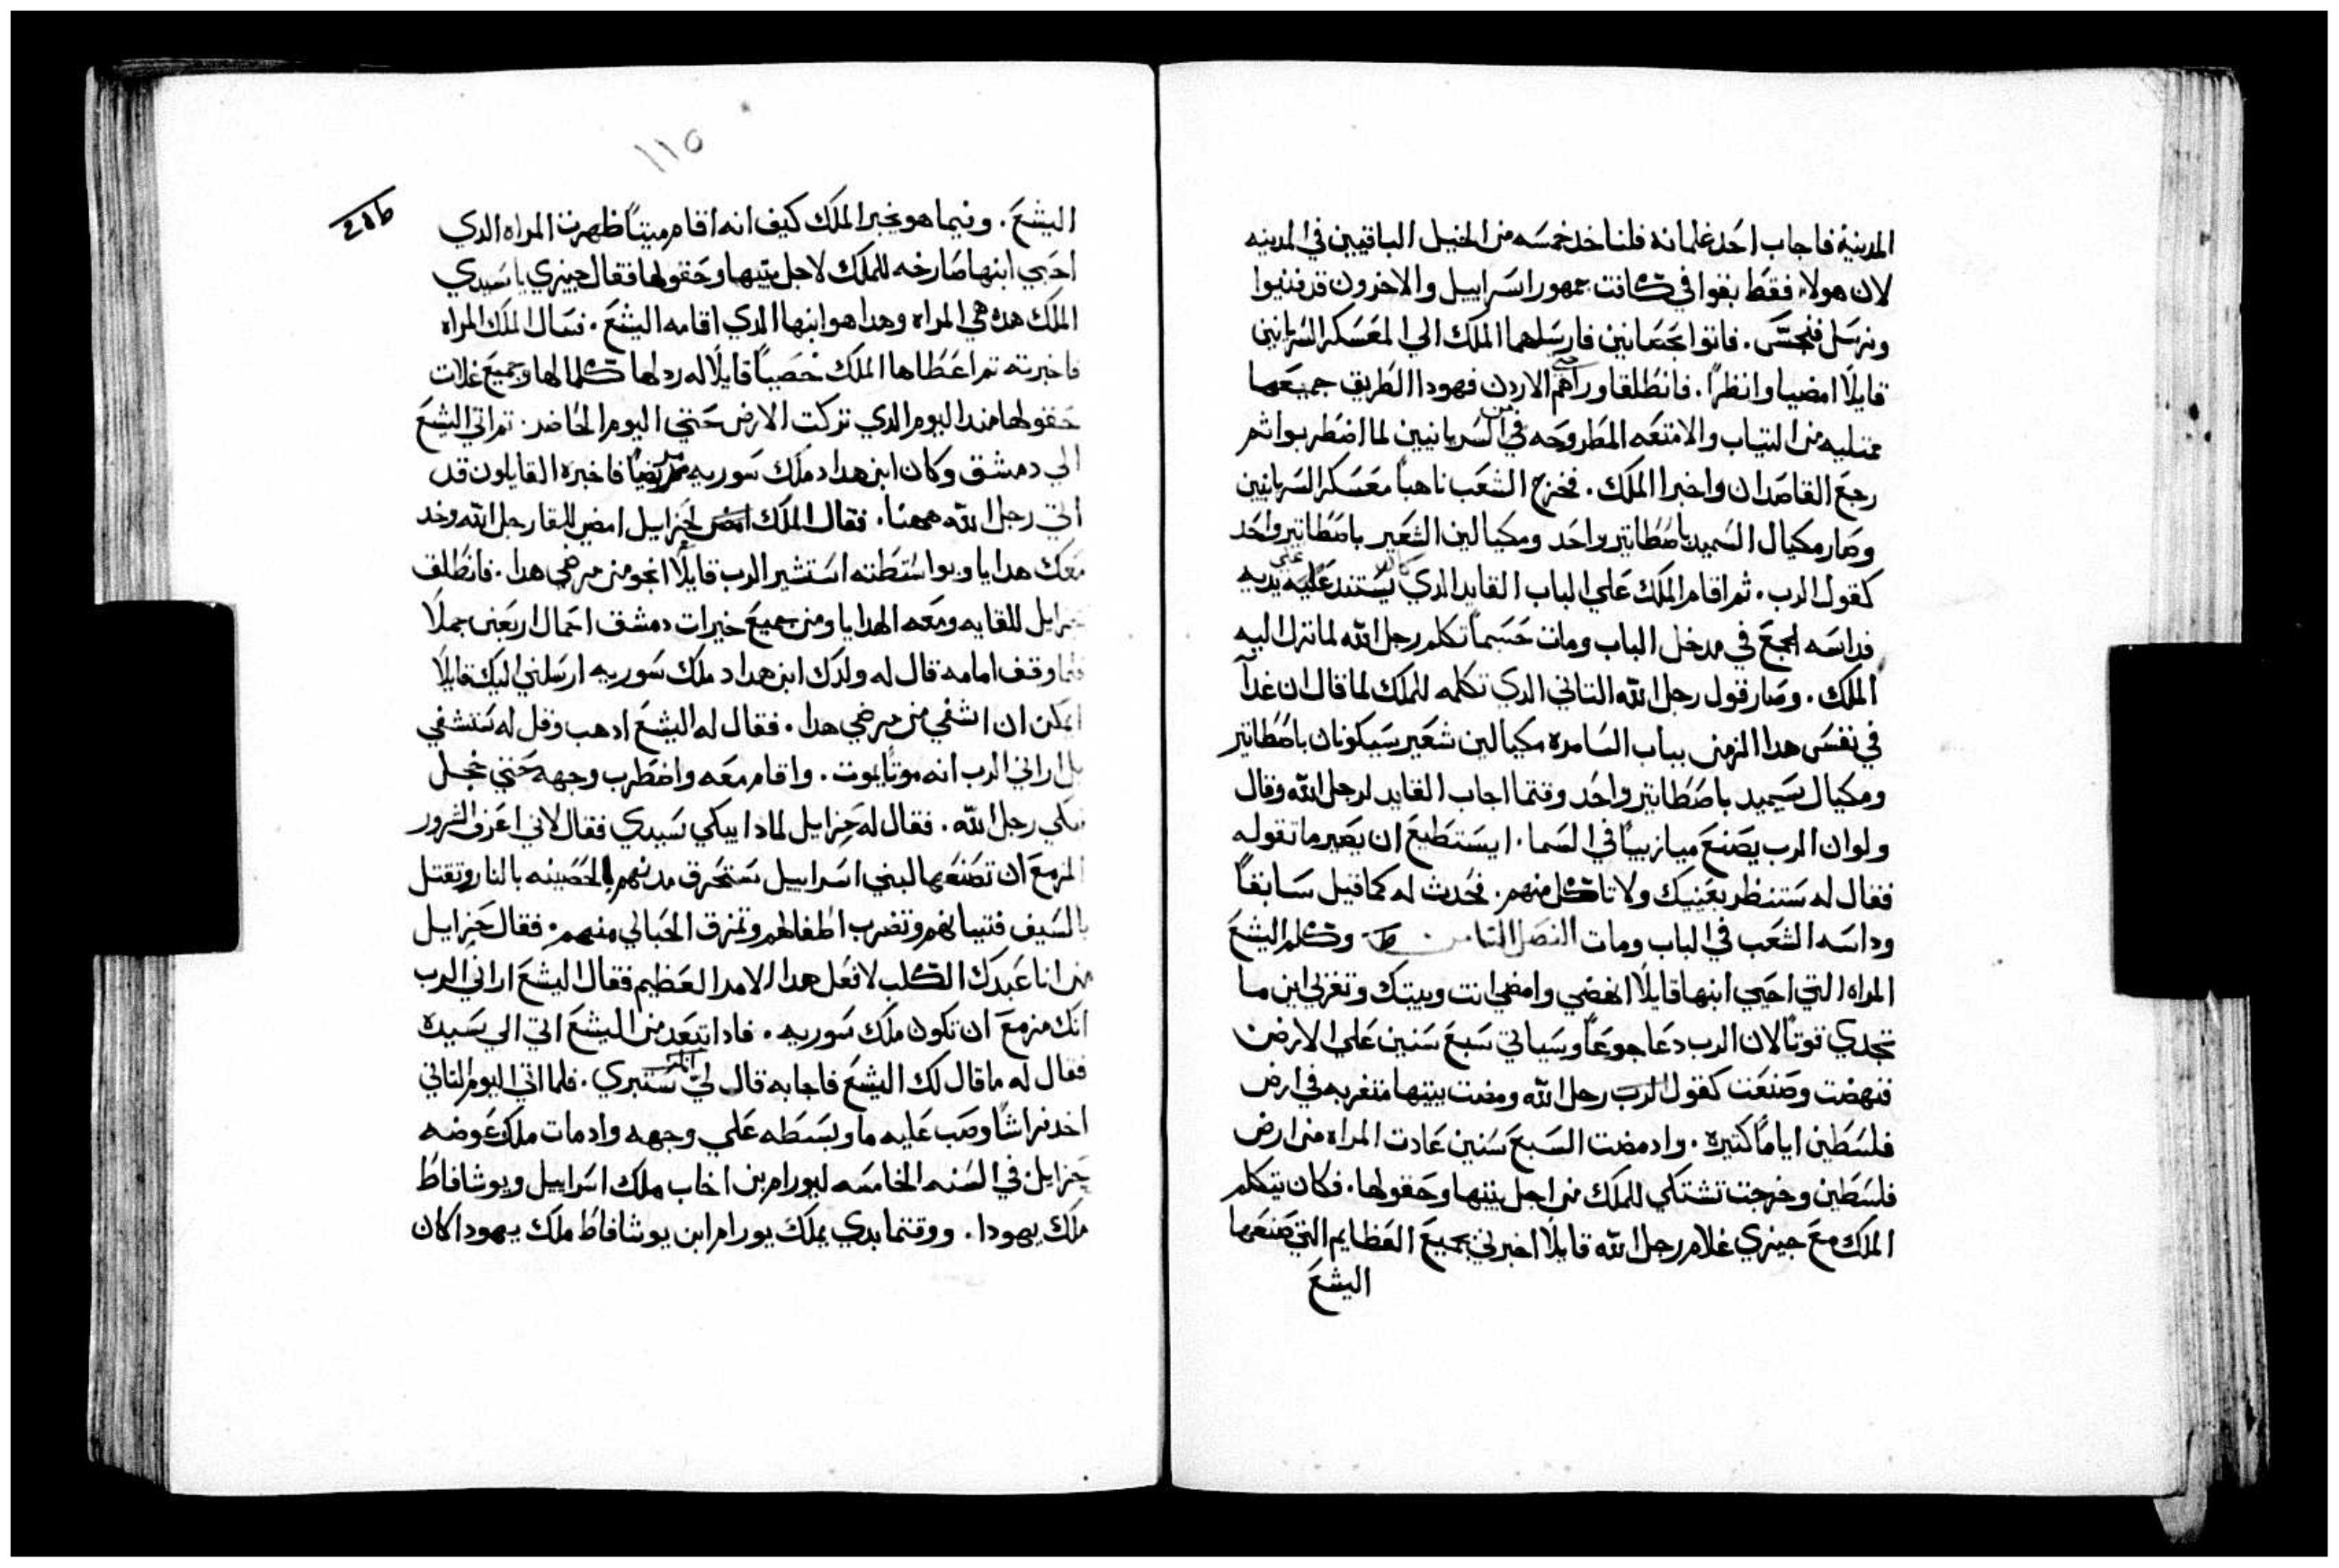 المدينة فاجاب احد غلمانه فلناخد خمسه من الخيل الباقيين في المدينه
لان هولاء فقط بقوا في كانت جمهور اسراييل والاخرون قد فنيوا
ونرسل فنجسس. فاتوا بحصانين فارسلهما الملك الي المعسكر السريانيين
قايلًا امضيا وانظرا. فانطلقا وراهم حتي الاردن فهودا الطريق جميعها
ممتليه من التياب والامتعه المطروحه من السريانيين لما اضطربوا ثم
رجع القاصدان واخبرا الملك. فخرج الشعب ناهباً معسكر السريانيين
وصار مكيال السميد باصطاتير واحد ومكيالين الشعير باصطاتير واحد
كقول الرب. ثم اقام الملك علي الباب القايد الدي كان يستند علي يديه
فداسه الجمع في مدخل الباب ومات حسبما تكلم رجل الله لما نزل اليه
الملك. وصار قول رجل الله التاني الدي تكلمه للملك لما قال ان غداً
في نفس هدا الزمن بباب السامره مكيالين شعير سيكونان باصطاتير
ومكيال سميد باصطاتير واحد وقتما اجاب القايد لرجل الله وقال
ولو ان الرب يصنع ميازيبًا في السما. ايستطيع ان يصير ما تقوله
فقال له ستنظر بعينيك ولا تاكل منهم. فحدث له كما قيل سابقاً
وداسه الشعب في الباب ومات الفصل التامن وكلم اليشع
المراه التي احيي ابنها قايلًا انهضي وامضي انت وبيتك وتغربي اين ما
تجدي قوتًا لان الرب دعا جوعاً وسياتي سبع سنين علي الارض
فنهضت وصنعت كقول الرب رجل الله ومضت ببيتها متغربه في ارض
فلسطين اياماً كثيره. واد مضت السبع سنين عادت المراه من ارض
فلسطين وخرجت تشتكي للملك من اجل بيتها وحقولها. فكان يتكلم
الملك مع جيزي غلام رجل الله قايلًا اخبرني بجميع العظايم التي صنعها
اليشع
١١٥
اليشع. وفيما هو يخبر الملك كيف انه اقام ميتًا ظهرت المراه الدي
احيي ابنها صارخه للملك لاجل بيتها وحقولها فقال جيزي يا سيدي
الملك هده هي المراه وهدا هو ابنها الدي اقامه اليشع. فسال الملك المراه
فاخبرته تم اعطاها الملك خصياً قايلًا له رد لها كلما لها وجميع غلات
حقولها مند اليوم الدي تركت الارض حتي اليوم الحاضر. تم اتي اليشع
الي دمشق وكان ابن هداد ملك سوريه مريضًا فاخبره القايلون قد
اتي رجل الله ههنا. فقال الملك لحزاييل امض للقا رجل الله وخد
معك هدايا وبواسطته استشير الرب قايلًا انجو من مرضي هدا. فانطلق
حزايل للقايه ومعه الهدايا ومن جميع خيرات دمشق احمال اربعين جملًا
فلما وقف امامه قال له ولدك ابن هداد ملك سوريه ارسلني اليك قايلًا
ايمكن ان اشفي من مرضي هدا. فقال له اليشع ادهب وقل له ستشفي
بل اراني الرب انه موتًا يموت. واقام معه واضطرب وجهه حتي خجل
وبكي رجل الله. فقال له حزايل لمادا يبكي سيدي فقال لاني اعرف الشرور
المزمع ان تصنعها لبني اسراييل ستحرق مدنهم الحصينه بالنار وتقتل
بالسيف فتيانهم وتضرب اطفالهم وتمزق الحبالي منهم. فقال حزايل
من انا عبدك الكلب لافعل هدا الامر العظيم فقال اليشع اراني الرب
انك مزمع ان تكون ملك سوريه. فاد ابتعد من اليشع اتي الي سيده
فقال له ما قال لك اليشع فاجابه قال لي انك ستبري. فلما اتي اليوم التاني
اخد فراشًا وصب عليه ما وبسطه علي وجهه واد مات ملك عوضه
حزايل في السنه الخامسه ليورام بن اخاب ملك اسراييل ويوشافاط
ملك يهودا. ووقتما بدي يملك يورام ابن يوشافاط ملك يهودا كان